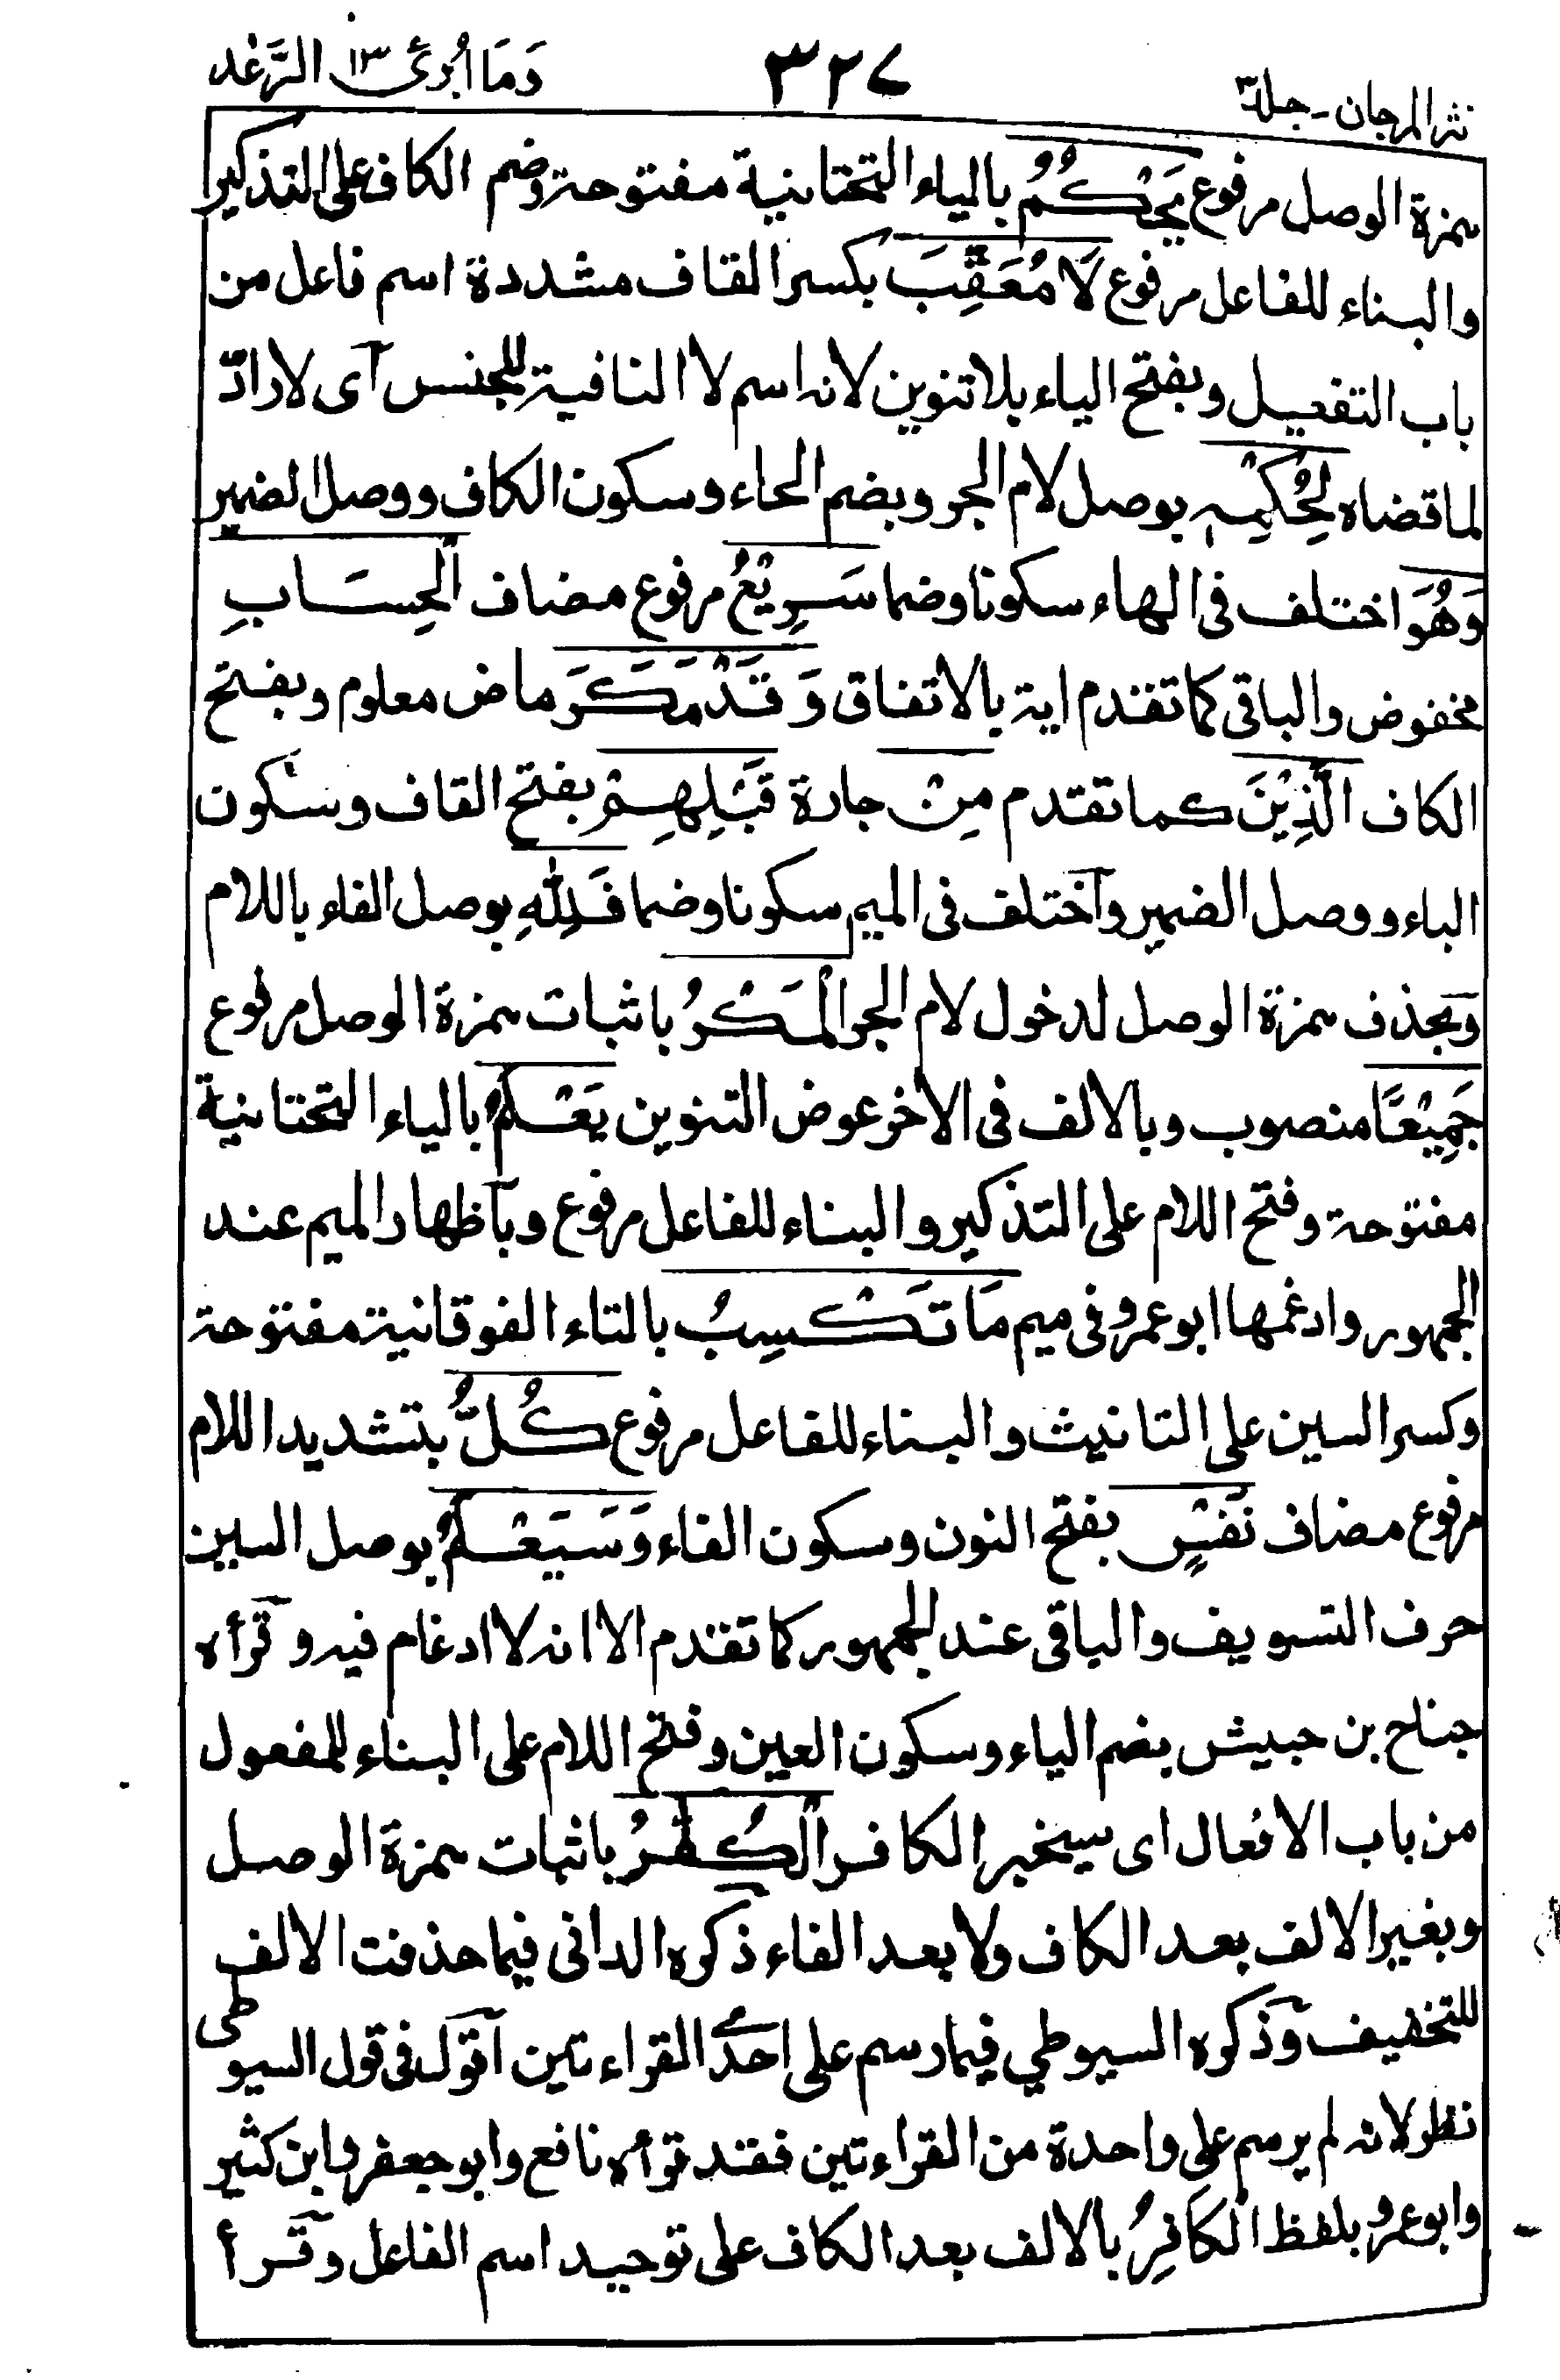 نثر المرجان - جلد ٣ ٣٢٧ وَمَا اُبَرِّئُ ١٣ الرَّعْد
همزة الوصل مرفوع يَحْكُمُ بالياء التحتانية مفتوحة وضم الكاف على التذكير
والبناء للفاعل مرفوع لَا مُعَقِّبَ بكسر القاف مشددة اسم فاعل من
باب التفعيل وبفتح الياء بلا تنوين لانه اسم لا النافية للجنس آى لا رادّ
لما قضاه لِحُكْمِهٖ بوصل لام الجر وبضم الحاء وسكون الكاف ووصل الضمير
وَهُوَ اختلف فى الهاء سكونا وضما سَرِيْعُ مرفوع مضاف الْحِسَابِ
مخفوض والباقى كما تقدم اية بالاتفاق وَقَدْ مَكَرَ ماض معلوم وبفتح
الكاف الَّذِيْنَ كما تقدم مِنْ جارة قَبْلِهِمْ بفتح القاف وسكون
الباء ووصل الضمير وآختلف فى الميم سكونا وضما فَلِلّٰهِ بوصل الفاء باللام
وبحذف همزة الوصل لدخول لام الجر الْمَكْرُ باثبات همزة الوصل مرفوع
جَمِيْعًا منصوب وبالالف فى الأخر عوض التنوين يَعْلَمُ بالياء التحتانية
مفتوحة وفتح اللام على التذكير والبناء للفاعل مرفوع وبآظهار الميم عند
الجمهور وادغمها ابو عمرو فى ميم مَا تَكْسِبُ بالتاء الفوقانية مفتوحة
وكسر السين على التانيث والبناء للفاعل مرفوع كُلُّ بتشديد اللام
مرفوع مضاف نَفْسٍ بفتح النون وسكون الفاء وَسَيَعْلَمُ بوصل السين
حرف التسويف والباقى عند الجمهور كما تقدم الا انه لا ادغام فيه وقرأه
جناح بن حبيش بضم الياء وسكون العين وفتح اللام على البناء للمفعول
من باب الافعال اى سيخبر الكافر الْكُفّٰرُ باثبات همزة الوصل
وبغير الالف بعد الكاف ولا بعد الفاء ذكره الدانى فيما حذفت الالف
للتخفيف وذكره السيوطي فيما رسم على احدى القراءتين آقول فى قول السيوطى
نظر لانه لم يرسم على واحدة من القراءتين فقد قرأه نافع وابو جعفر وابن كثير
وابو عمرو بلفظ الْكَافِرُ بالالف بعد الكاف على توحيد اسم الفاعل وقرأ